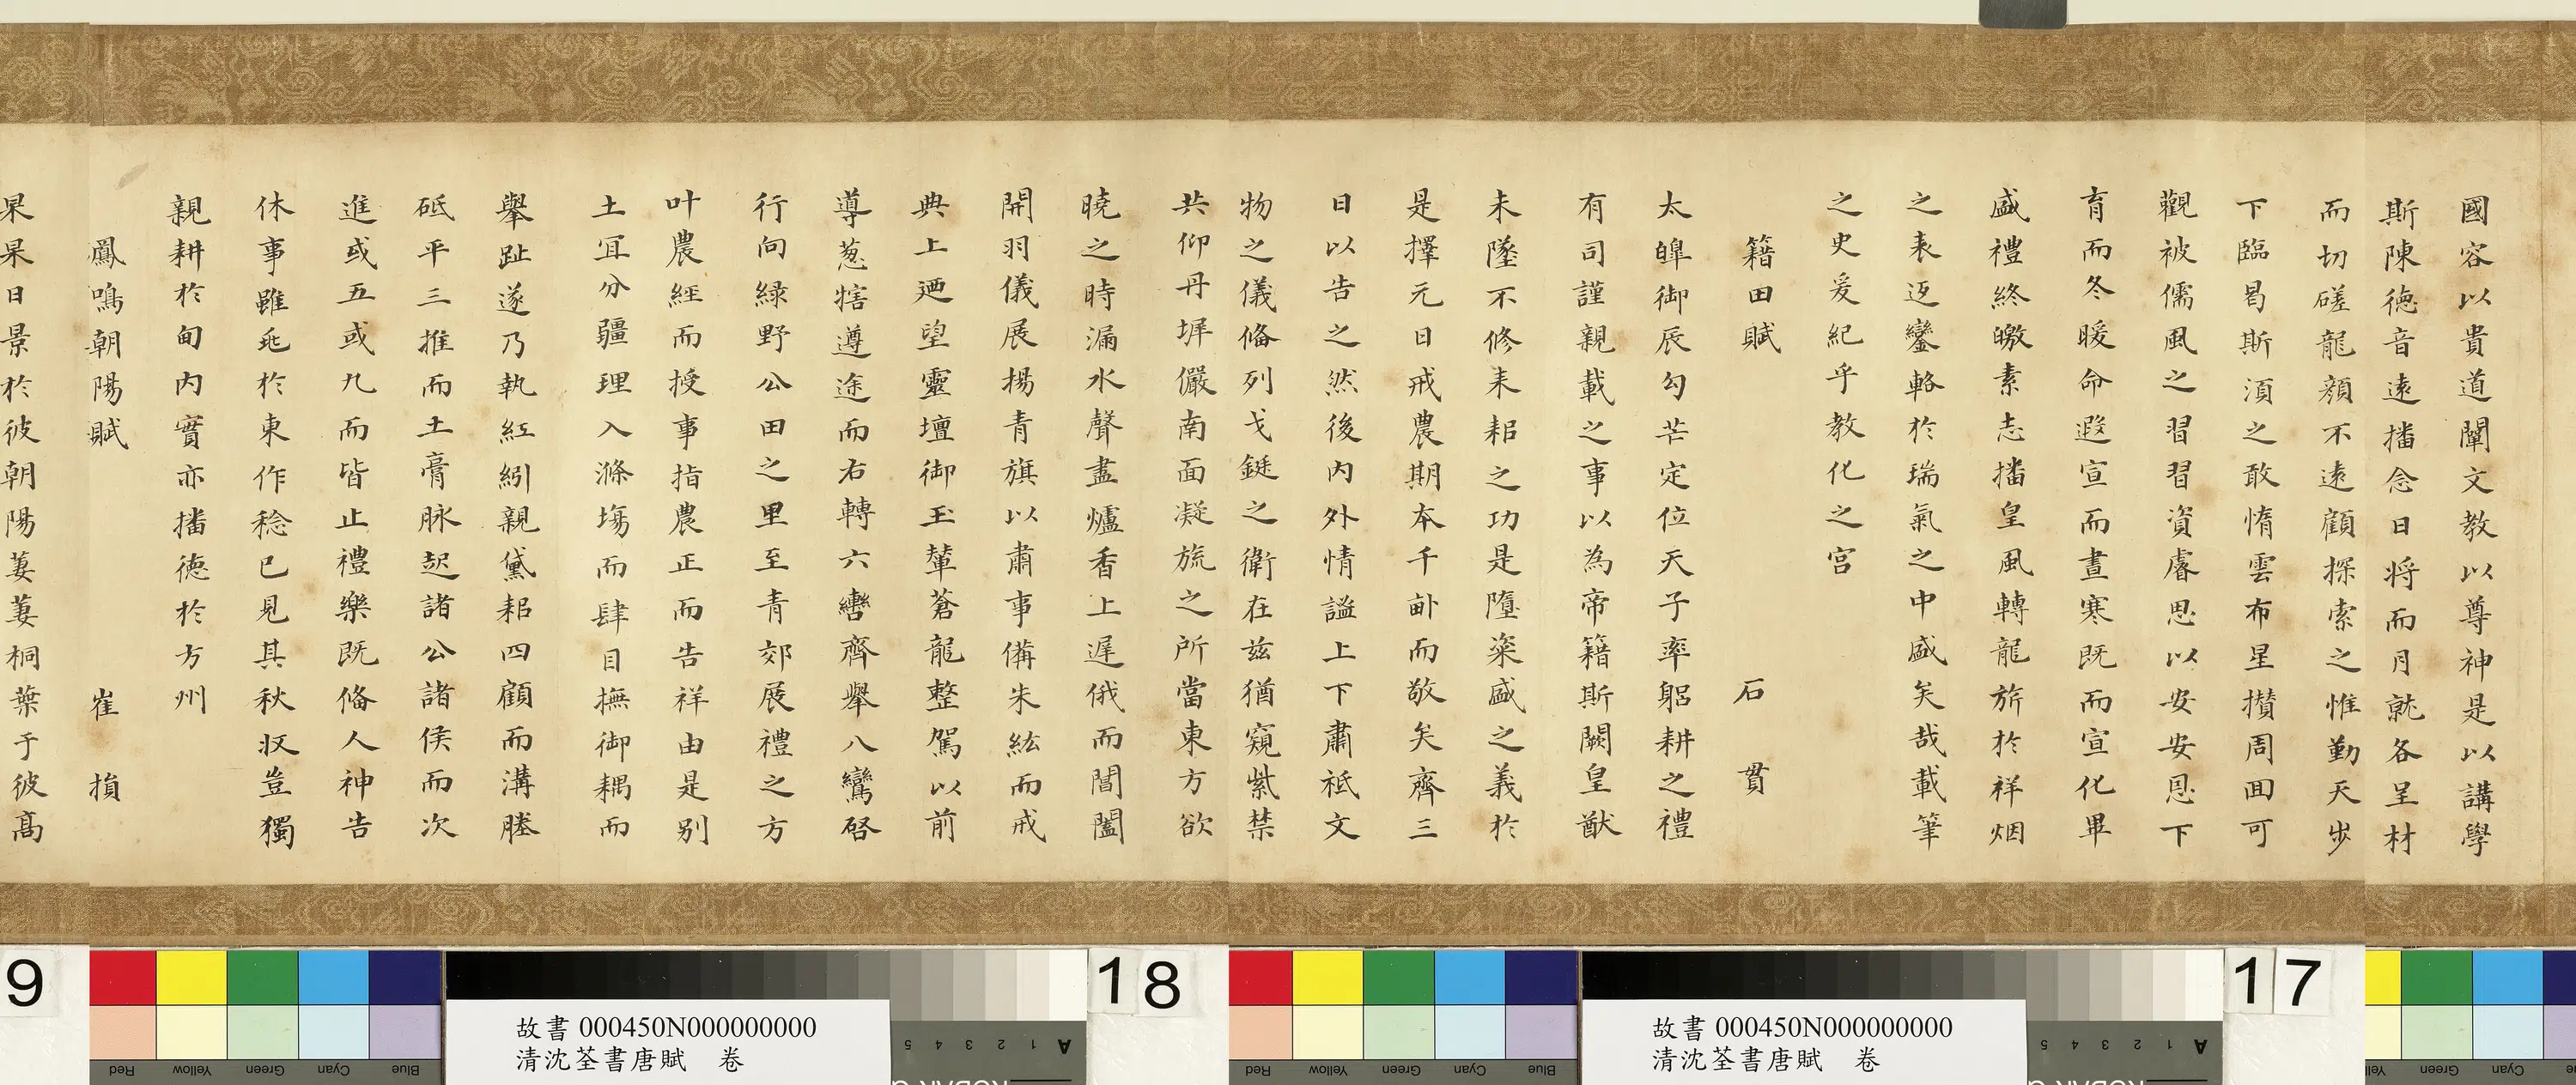 國容以貴道闡文教以尊神是以講學
斯陳德音遠播念日將而月就各呈材
而切磋龍顏不遠顧探索之惟勤天步
下臨曷斯須之敢惰雲布星攢周回可
觀被儒風之習習資睿思以安安恩下
育而冬暖命遐宣而晝寒既而宣化畢
盛禮終暾素志播皇風轉龍旂於祥烟
之表迓鑾輅於瑞氣之中盛矣哉載筆
之史爰紀乎教化之宮
籍田賦 石貫
太皥御辰勾芒定位天子率躬耕之禮
有司謹親載之事以為帝籍斯闕皇猷
未墜不修耒耜之功是墮粢盛之義於
是擇元日戒農期夲千畝而敬矣齊三
日以告之然後內外情謐上下肅祗文
物之儀俻列戈鋋之衛在茲猶窺紫禁
共仰丹墀儼南面凝旒之所當東方欲
曉之時漏水聲盡爐香上遲俄而閶闔
開羽儀展揚青旗以肅事備朱紘而戒
典上迺望靈壇御玉輦蒼龍整駕以前
導葱犗遵途而右轉六轡齊舉八鸞啓
行向綠野公田之里至青郊展禮之方
叶農經而授事指農正而告祥由是別
土宜分疆理入滌場而肆目撫御耦而
舉趾遂乃執紅紖親黛耜四顧而溝塍
砥平三推而土膏脉起諸公諸侯而次
進或五或九而皆止禮樂既俻人神告
休事雖乖於東作稔已見其秋収豈獨
親耕於甸內實亦播德於方州
鳳鳴朝陽賦 崔損
杲杲日景於彼朝陽萋萋桐葉于彼高
9
18
17
故書 000450N000000000
清沈荃書唐賦 卷
故書 000450N000000000
清沈荃書唐賦 卷
Red Yellow Green Cyan Blue
A 1 2 3 4 5
Red Yellow Green Cyan Blue
A 1 2 3 4 5
Green Cyan